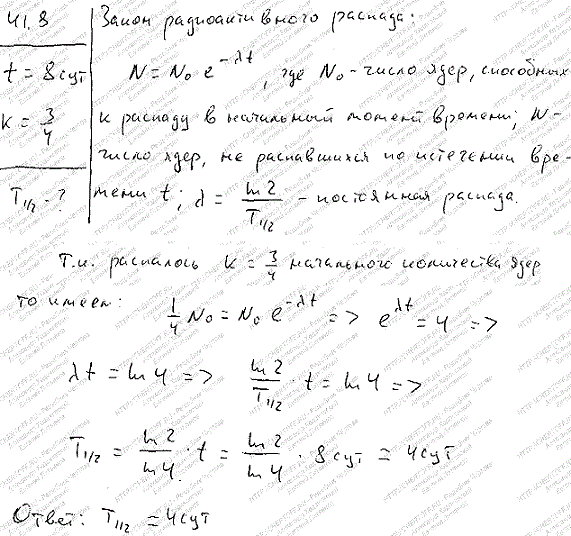 41.8
t = 8 сут
K = 3/4
T1/2 - ?
Закон радиоактивного распада:
N = N₀ e^(-λt), где N₀ - число ядер, способных
к распаду в начальный момент времени; N -
число ядер, не распавшихся по истечении вре-
мени t; λ = ln 2 / T1/2 - постоянная распада.
Т.к. распалось K = 3/4 начального количества ядер
то имеем: 1/4 N₀ = N₀ e^(-λt) => e^(λt) = 4 =>
λt = ln 4 => ln 2 / T1/2 · t = ln 4 =>
T1/2 = ln 2 / ln 4 · t = ln 2 / ln 4 · 8 сут = 4 сут
Ответ: T1/2 = 4 сут